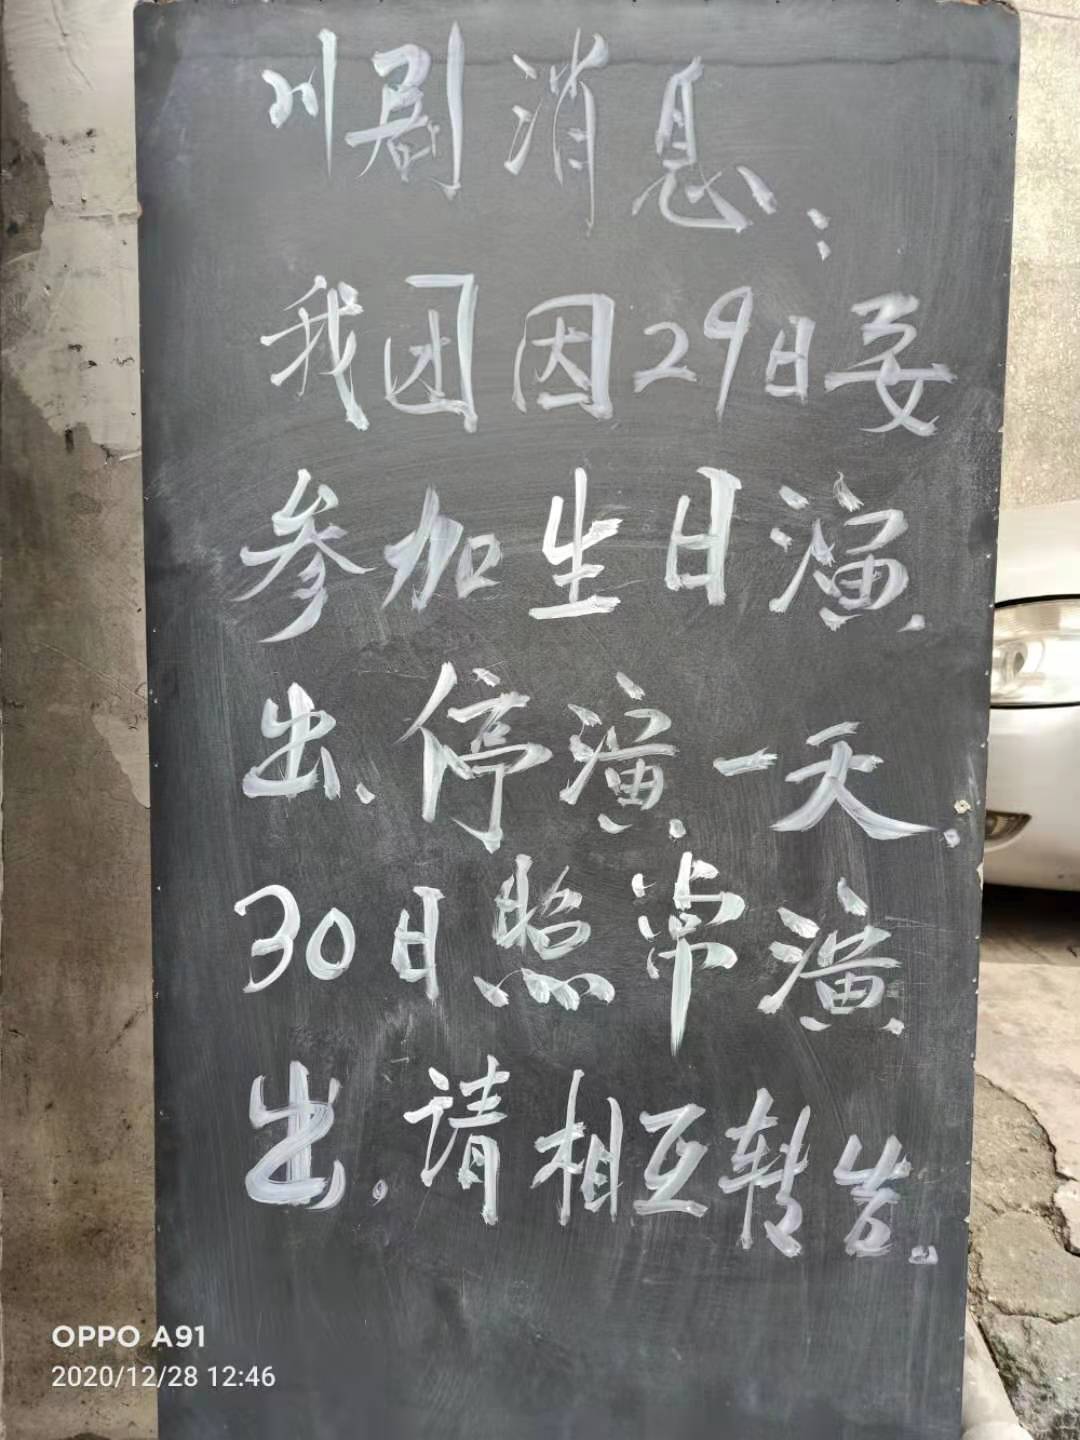 川剧消息:
我团因29日要
参加生日演
出、停演一天.
30日照常演
出。请相互转告。
OPPO A91
2020/12/28 12:46